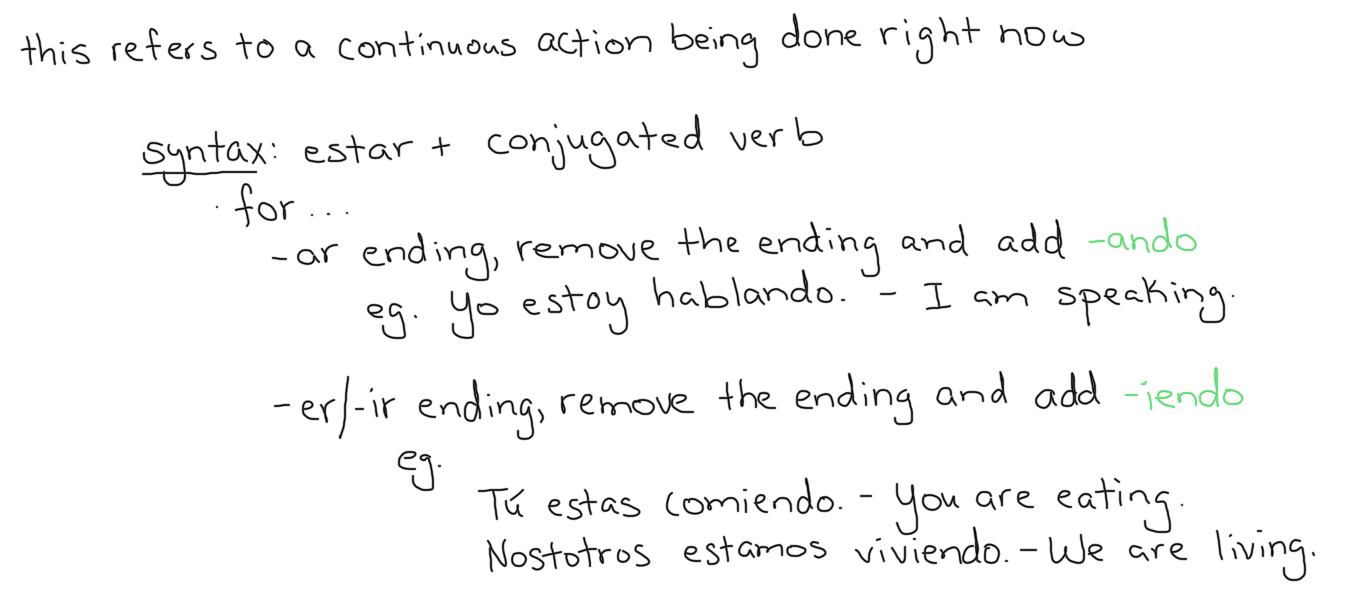 this refers to a continuous action being done right now
syntax: estar + conjugated verb
· for ...
-ar ending, remove the ending and add -ando
eg. Yo estoy hablando. - I am speaking.
-er/-ir ending, remove the ending and add -iendo
eg.
Tú estas comiendo. - You are eating.
Nostotros estamos viviendo. - We are living.